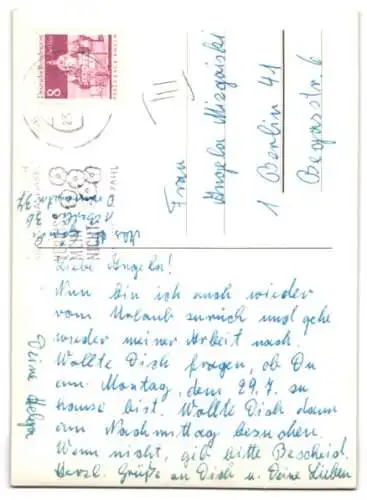 Frau
Angela Mizgaiski
1 Berlin 41
Begasstr. 6
8
1 Berlin 36
Liebe Angela!
Nun bin ich auch wieder
vom Urlaub zurück und gehe
wieder meiner Arbeit nach.
Wollte Dich fragen, ob Du
am Montag, dem 29.7. zu
hause bist. Wollte Dich dann
am Nachmittag besuchen.
Wenn nicht, gib bitte Bescheid.
Herzl. Grüße an Dich u. Deine Lieben
Deine Helga